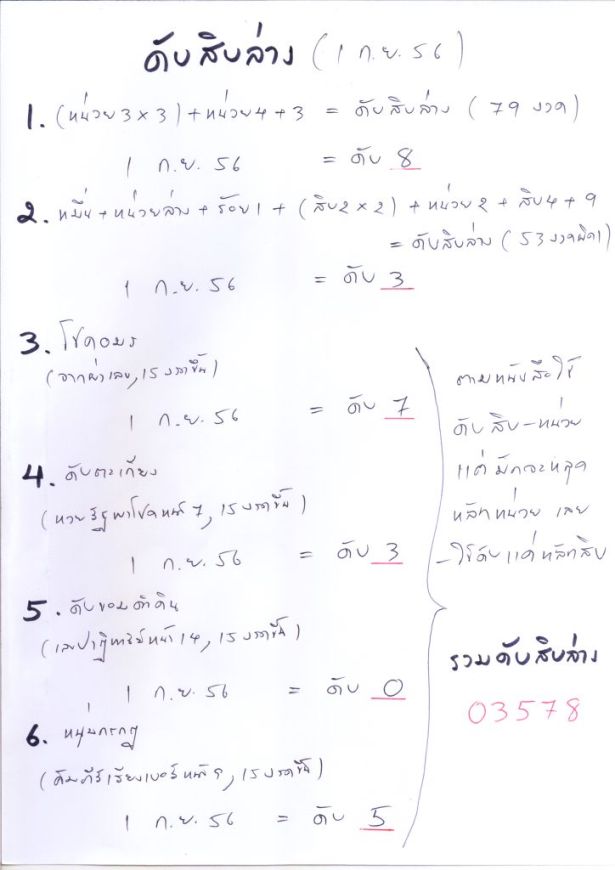 ดับสิบล่าง (1 ก.ย. 56)
1. (หน่วย3×3)+หน่วย4+3 = ดับสิบล่าง (79 งวด)
1 ก.ย. 56 = ดับ 8
2. หมื่น+หน่วยล่าง+ร้อย1+(สิบ2×2)+หน่วย2+สิบ4+9
= ดับสิบล่าง (53 งวดผิด1)
1 ก.ย. 56 = ดับ 3
3. โชคอมร
(จาก เลข, 15 งวดขึ้น)
1 ก.ย. 56 = ดับ 7
4. ดับตะเกียง
(หวยรัฐพาโชคหน้า 7, 15 งวดขึ้น)
1 ก.ย. 56 = ดับ 3
5. ดับขอมดำดิน
(เลขปาฏิหาริย์หน้า 14, 15 งวดขึ้น)
1 ก.ย. 56 = ดับ 0
6. หนุ่มกรกฎ
(คัมภีร์เรียงเบอร์หน้า 9, 15 งวดขึ้น)
1 ก.ย. 56 = ดับ 5
ตามหนังสือใช้
ดับสิบ-หน่วย
แต่มักจะหลุด
หลักหน่วย เลย
-ใช้ดับแค่หลักสิบ
รวมดับสิบล่าง
03578